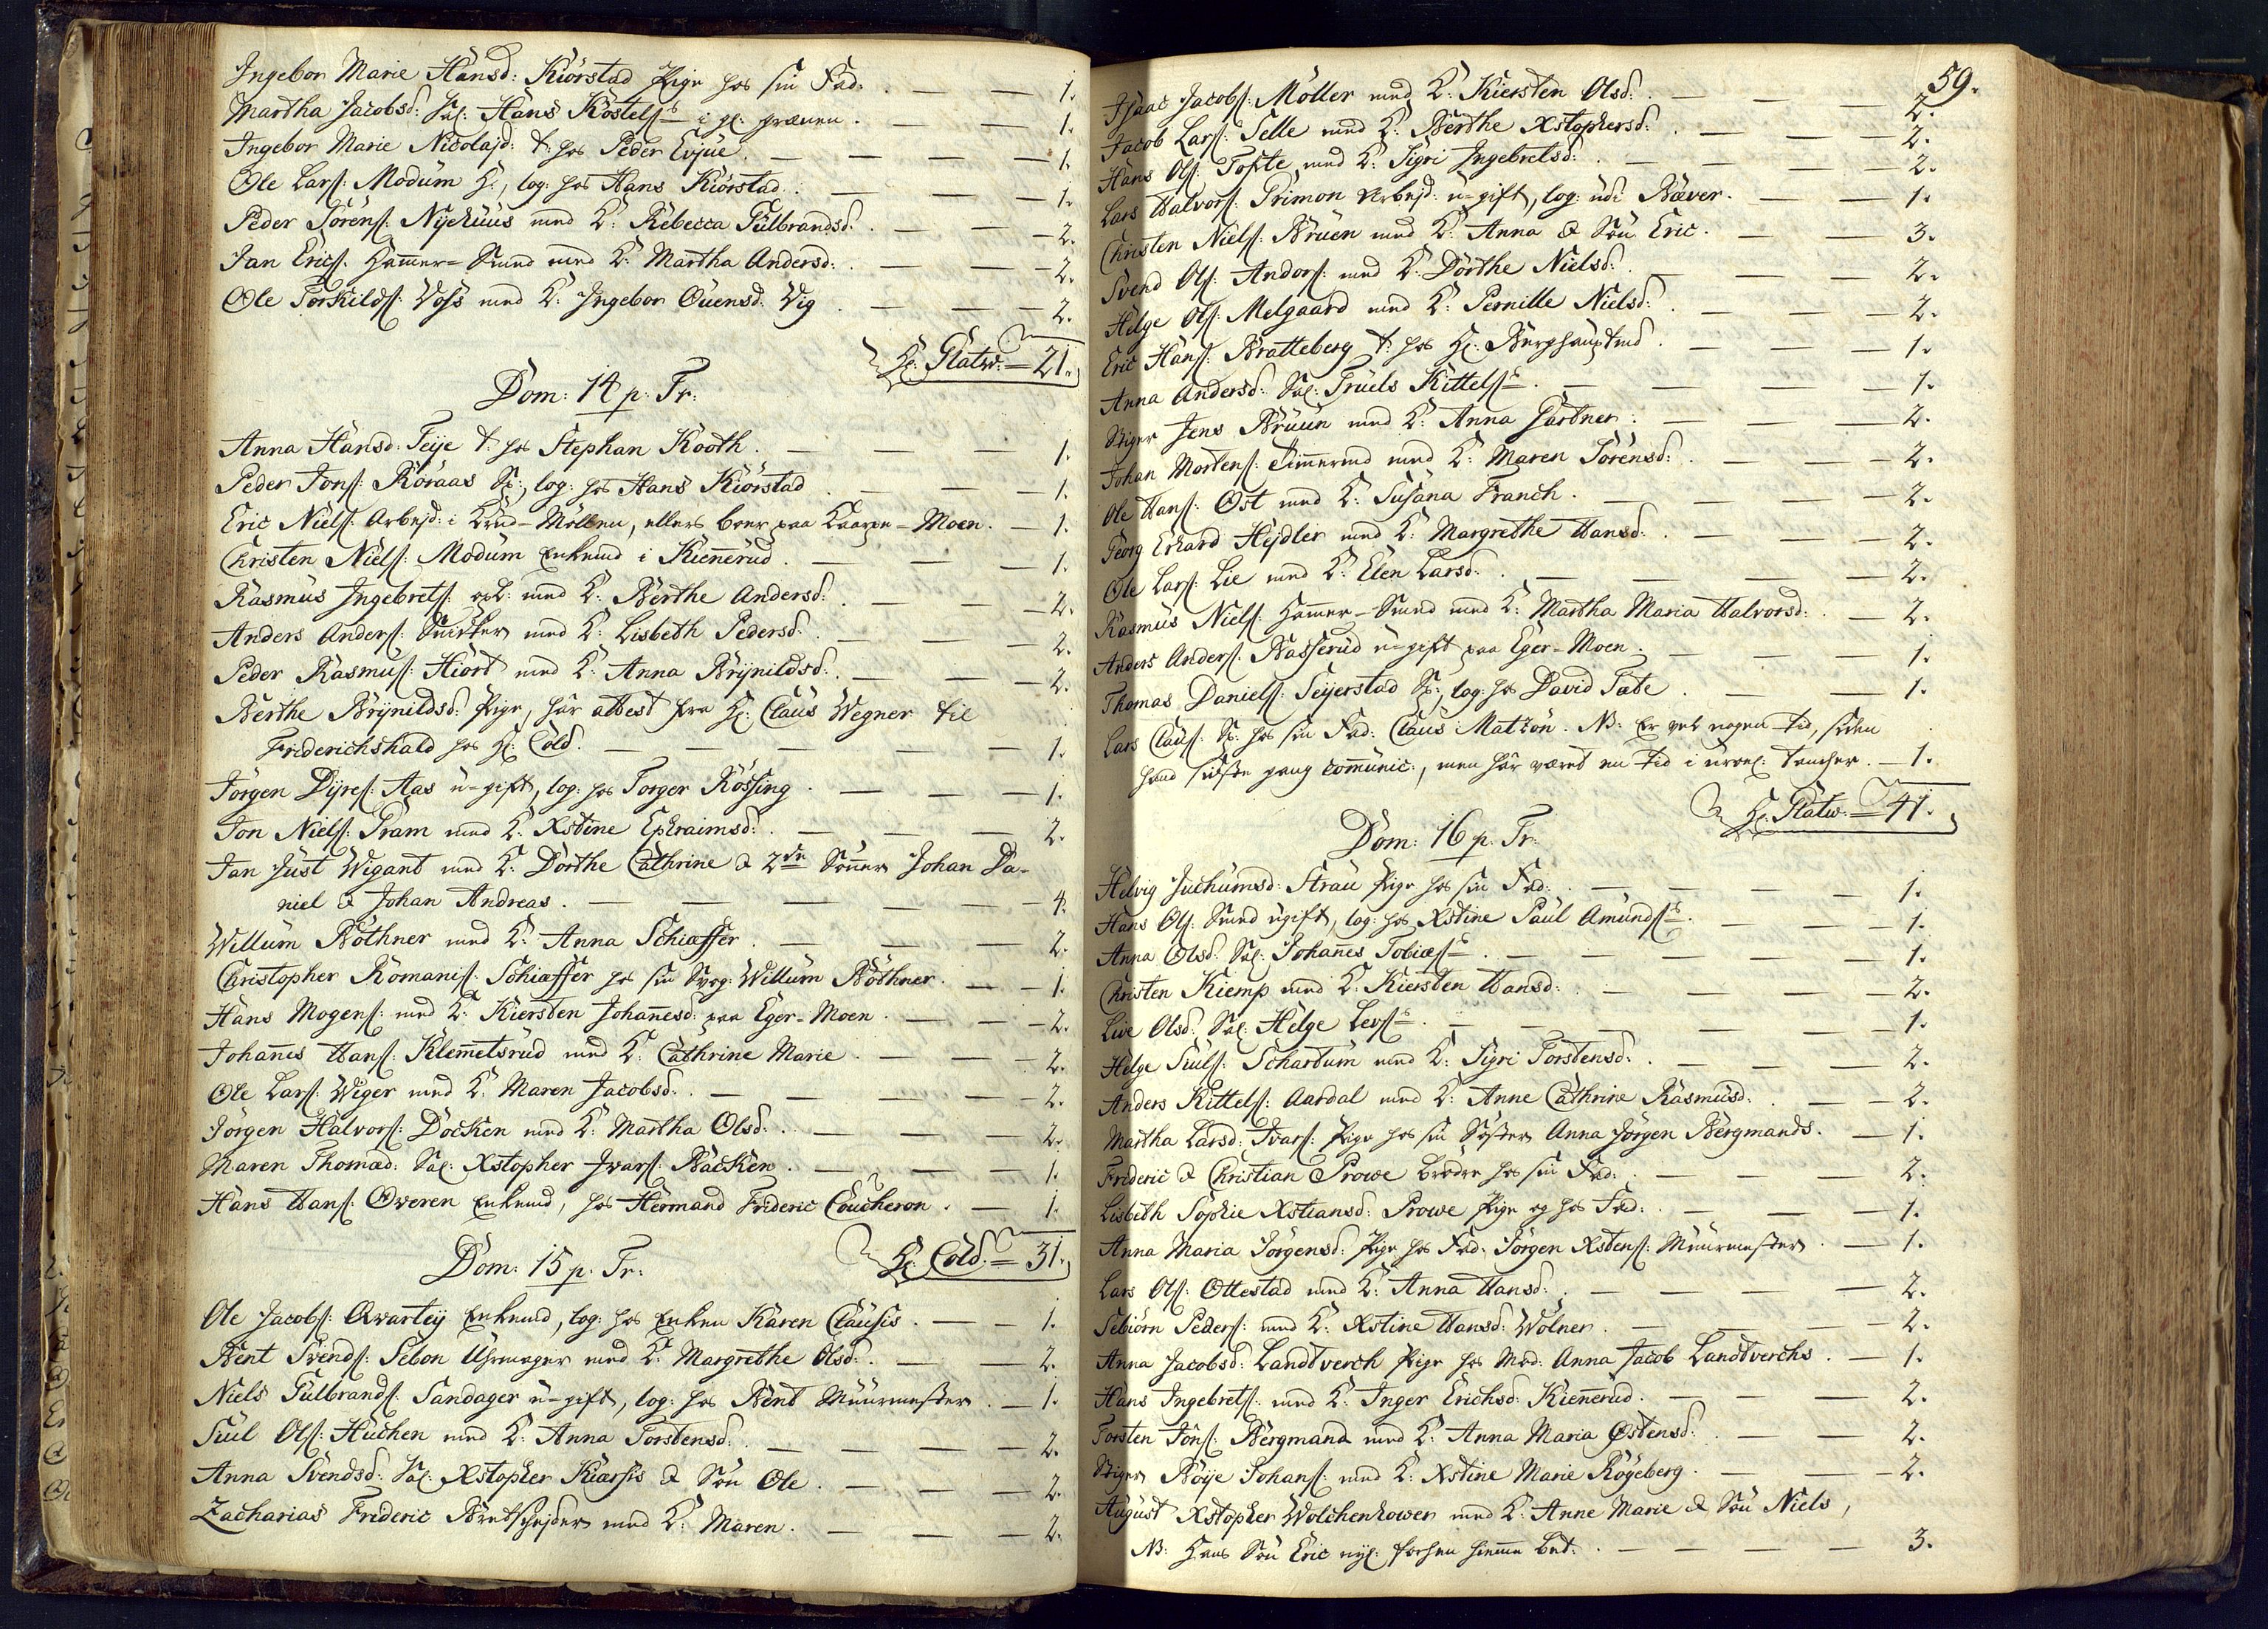 Ingebor Marie Hansd: Kiörstad Pige hos sin Fad: . — — 1.
Martha Jacobsd: Sal: Hans Köstelss i gl: . — — 1.
Ingebor Marie Nicolajd: t: hos Peder Evjue . — — — 1.
Ole Larss: Modum S:, log: hos Hans Kiörstad . — — — 1.
Peder Sörenss: Nyehuus med K: Rebecca Gulbrandsd: . — — 2.
Jan Ericss: Hammer-Smed med K: Martha Andersd: . — — 2.
Ole Torkildss: Voss med K: Ingebor Ouensd: Vig . — — 2.
Hr: Platw: = 21.
Dom: 14 p: Tr:
Anna Hansd: Teije t: hos Stephan Kooth . — — — 1.
Peder Jonss: Röraas Sp:, log: hos Hans Kiörstad . — — 1.
Eric Nielss: Arbejd: i Krud-Möllen, ellers boer paa Kaarpe-Moen . — 1.
Christen Nielss: Modum Enkemd i Kiennerud . — — — 1.
Rasmus Ingebretss: opl: med K: Berthe Andersd: . — — 2.
Anders Anderss: Snidker med K: Lisbeth Pedersd: . — — 2.
Peder Rasmuss: Hiort med K: Anna Brynildsd: . — — 2.
Berthe Brynildsd: Pige, har attest fra Hr: Claus Wegner til
Friderichshald hos Hr: Cold . — — — — 1.
Jörgen Dyress: Aas u-gift, log: hos Torger Rössing . — — — 1.
Jon Nielss: Pram med K: Xstine Ephraimsd: . — — — 2.
Jan Just Wigant med K: Dorthe Cathrine & 2de Sönner Johan Da-
niel & Johan Andreas . — — — — 4.
Willum Böthner med K: Anna Schiæffer . — — — 2.
Christopher Romaniss: Schiæffer hos sin Svog: Willum Böthner . — — 1.
Hans Mogenss: med K: Kiersten Johannesd: paa Eger-Moen . — — 2.
Johannes Hanss: Klemmetsrud med K: Cathrine Marie . — — 2.
Ole Larss: Wiger med K: Maren Jacobsd: . — — — 2.
Jörgen Halvorss: Docken med K: Martha Olsd: . — — — 2.
Maren Thomæd: Sal: Xstopher Iwarss: Backen . — — — 1.
Hans Hanss: Overen Enkemd, hos Hermand Frideric Coucheron . — 1.
Hr: Cold. = 31.
Dom: 15 p: Tr:
Ole Jacobss: Qvartey Enkemd, log: hos Enken Karen Clausis . — — 1.
Bent Svendss: Sebon Uhrmager med K: Margrethe Olsd: . — — 2.
Niels Gulbrandss: Sandager u-gift, log: hos Bent Muurmester . — 1.
Siul Olss: Huchen med K: Anna Torstensd: . — — — 2.
Anna Svendsd: Sal: Xstopher Kiærsis & Sön Ole . — — — 2.
Zacharias Frideric Bretschejder med K: Maren . — — — 2.
59.
Isaac Jacobss: Möller med K: Kiersten Olsd: . — — — 2.
Jacob Larss: Selle med K: Berthe Xstophersd: . — — — 2.
Hans Olss: Tofte med K: Sigri Ingebretsd: . — — — 2.
Lars Halvorss: Primon Arbejd: u-gift, log: udi Bæver . — — 1.
Christen Nielss: Bruen med K: Anna & Sön Eric . — — 3.
Svend Olss: Andorss: med K: Dorthe Nielsd: . — — — 2.
Helge Olss: Melgaard med K: Pernille Nielsd: . — — — 2.
Eric Hanss: Bratteberg t: hos Hr: Berghauptmd . — — — 1.
Anna Andersd: Sal: Truels Kittelss . — — — 1.
Stiger Jens Bruun med K: Anna Gartner . — — — 2.
Johan Mortenss: Timmermd med K: Maren Sörensd: . — — 2.
Ole Hanss: Ost med K: Susana Franch . — — — 2.
Georg Erhard Hejdler med K: Margrethe Hansd: . — — — 2.
Ole Larss: Lie med K: Elen Larsd: . — — — 2.
Rasmus Nielss: Hammer-Smed med K: Martha Maria Halvorsd: . — 2.
Anders Anderss: Basserud u-gift paa Eger-Moen . — — — 1.
Thomas Danielss: Seyerstad Sp:, log: hos David Tate . — — 1.
Lars Clauss: Sp: hos sin Fad: Claus Matzön . NB: Er vel nogen tid, siden
hand sidste gang communic:, men har været en tid i tancher . — 1.
Hr: Platw: = 41.
Dom: 16 p: Tr:
Helvig Juchumsd: Strau Pige hos sin Fad: . — — — 1.
Hans Olss: Smed ugift, log: hos Xstine Paul Amundss . — — 1.
Anna Olsd: Sal: Johannes Tobiæss . — — — 1.
Christen Kiemp med K: Kiersten Hansd: . — — — 2.
Live Olsd: Sal: Helge Levss . — — — 1.
Helge Siulss: Schartum med K: Sigri Torstensd: . — — — 2.
Anders Kittelss: Aardal med K: Anne Cathrine Rasmusd: . — — 2.
Martha Larsd: Ivarss: Pige hos sin Söster Anna Jörgen Bergmands . — 1.
Frideric & Christian Prowe brödre hos sin Fad: . — — — 2.
Lisbeth Sophie Xstiansd: Prowe Pige og hos Fad: . — — — 1.
Anna Maria Jörgensd: Pige hos Fad: Jörgen Xstenss: Muurmester . — 1.
Lars Olss: Ottestad med K: Anna Hansd: . — — — 2.
Sebiörn Pederss: med K: Xstine Hansd: Wolner . — — — 2.
Anna Jacobsd: Landtverch Pige hos Mod: Anna Jacob Landtverchs . — 1.
Hans Ingebretss: med K: Inger Erichsd: Kiennerud . — — — 2.
Torsten Jönss: Bergmand med K: Anna Maria Østensd: . — — 2.
Stiger Böye Johanss: med K: Xstine Marie Rögeberg . — — 2.
August Xstopher Wolchenhower med K: Anne Marie & Sön Niels,
NB: Hans Sön Eric hiemme . — — — 3.